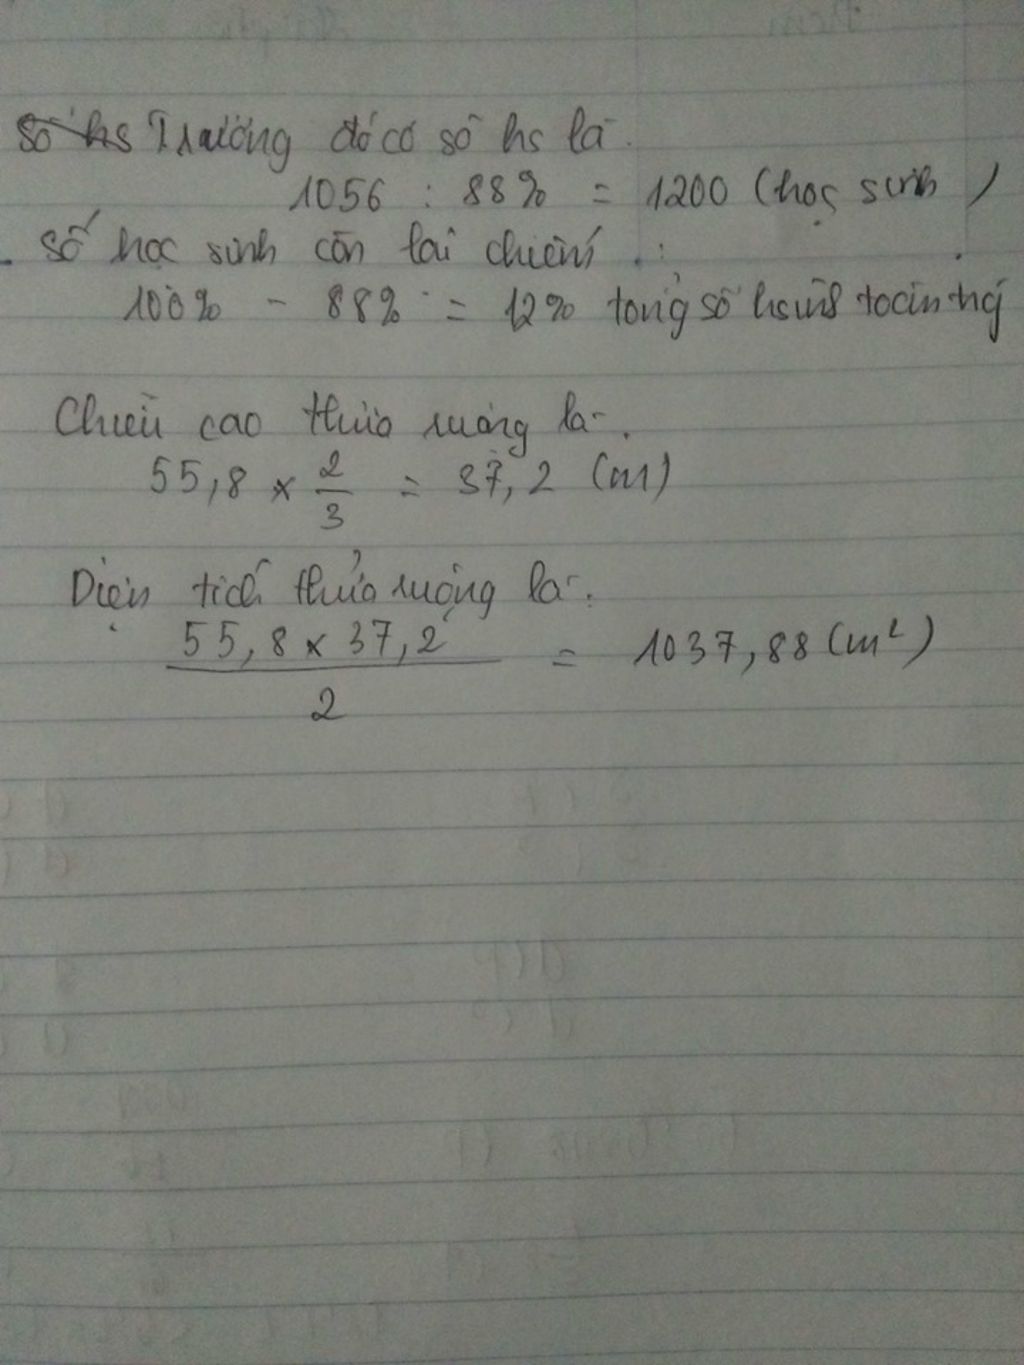 Trường đó có số hs là.
1056 : 88% = 1200 (học sinh)
Số học sinh còn lại chiếm :
100% - 88% = 12% tổng số hsinh toàn
Chiều cao thửa ruộng là.
55,8 x 2/3 = 37,2 (m)
Diện tích thửa ruộng là:
55,8 x 37,2 / 2 = 1037,88 (m²)